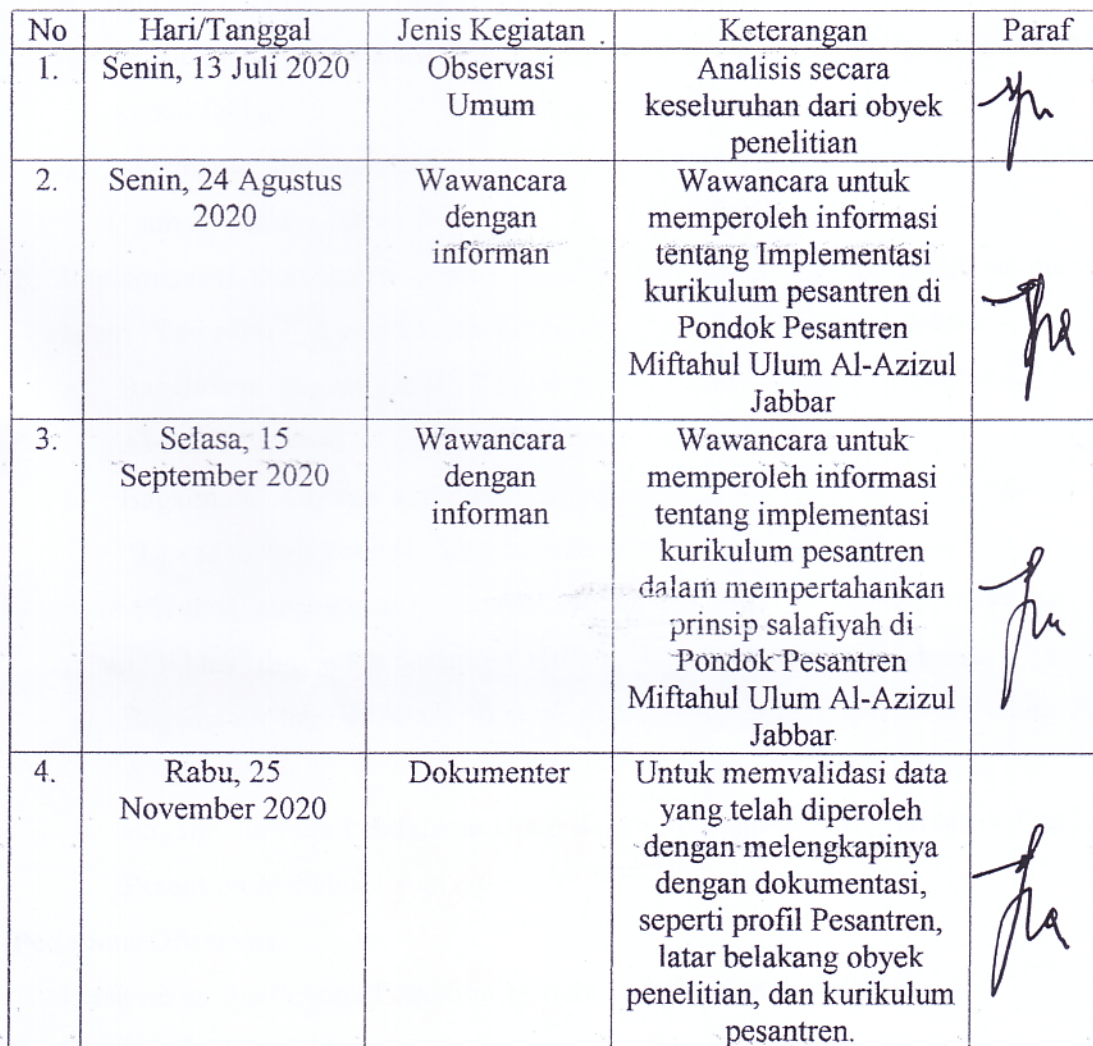 No Hari/Tanggal Jenis Kegiatan Keterangan Paraf
1. Senin, 13 Juli 2020 Observasi Analisis secara
Umum keseluruhan dari obyek
penelitian
2. Senin, 24 Agustus Wawancara Wawancara untuk
2020 dengan memperoleh informasi
informan tentang Implementasi
kurikulum pesantren di
Pondok Pesantren
Miftahul Ulum Al-Azizul
Jabbar
3. Selasa, 15 Wawancara Wawancara untuk
September 2020 dengan memperoleh informasi
informan tentang implementasi
kurikulum pesantren
dalam mempertahankan
prinsip salafiyah di
Pondok Pesantren
Miftahul Ulum Al-Azizul
Jabbar
4. Rabu, 25 Dokumenter Untuk memvalidasi data
November 2020 yang telah diperoleh
dengan melengkapinya
dengan dokumentasi,
seperti profil Pesantren,
latar belakang obyek
penelitian, dan kurikulum
pesantren.